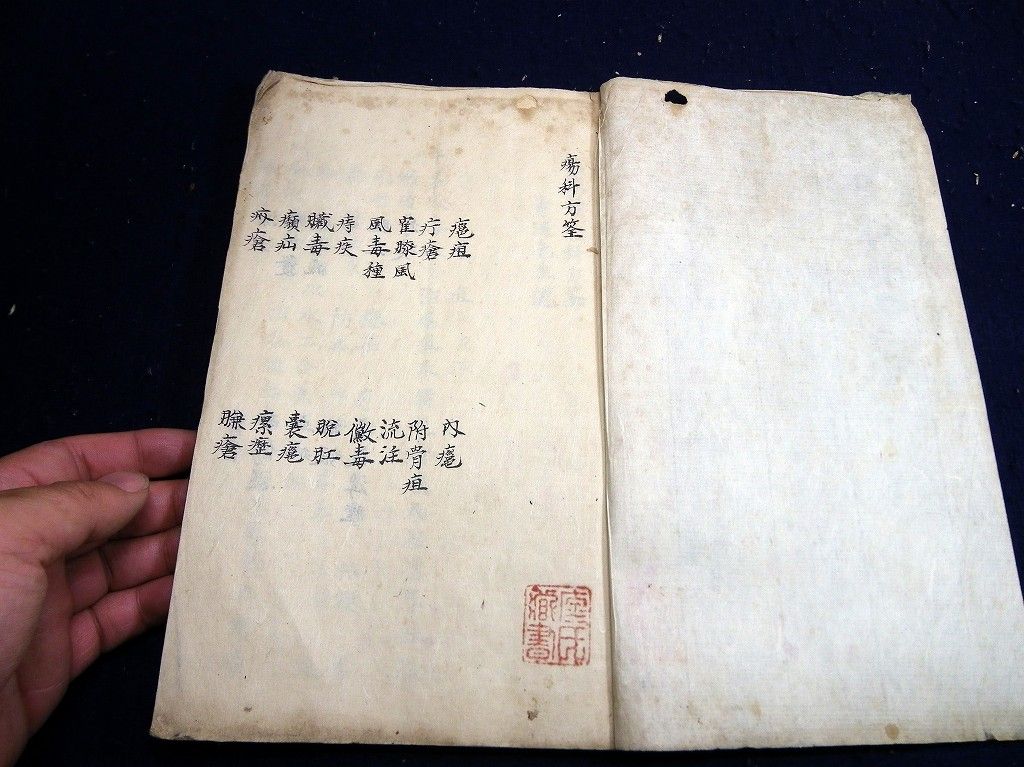 瘍科方筌
癰疽
疔瘡
寉膝風
風毒種
痔疾
臟毒
癩疝
疥瘡
内癰
附骨疽
流注
黴毒
脫肛
囊癰
瘰癧
臁瘡
氏
藏書